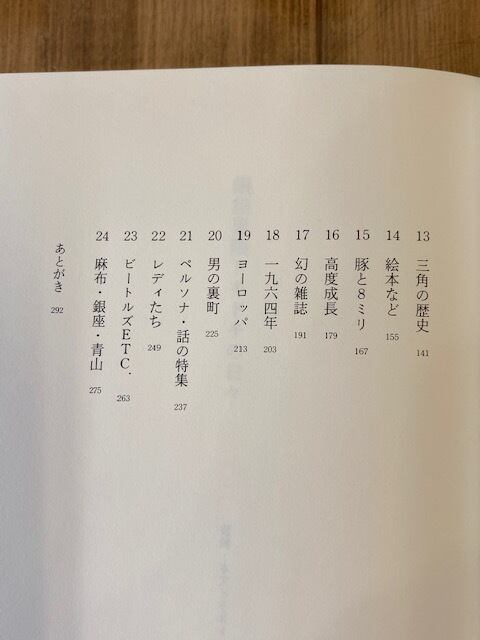 13 三角の歴史 141
14 絵本など 155
15 豚と8ミリ 167
16 高度成長 179
17 幻の雑誌 191
18 一九六四年 203
19 ヨーロッパ 213
20 男の裏町 225
21 ペルソナ・話の特集 237
22 レディたち 249
23 ビートルズETC. 263
24 麻布・銀座・青山 275
あとがき 292